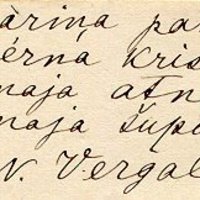 āriņa pa
ērnā kris
naja atn
naja šūp
N. Vergal